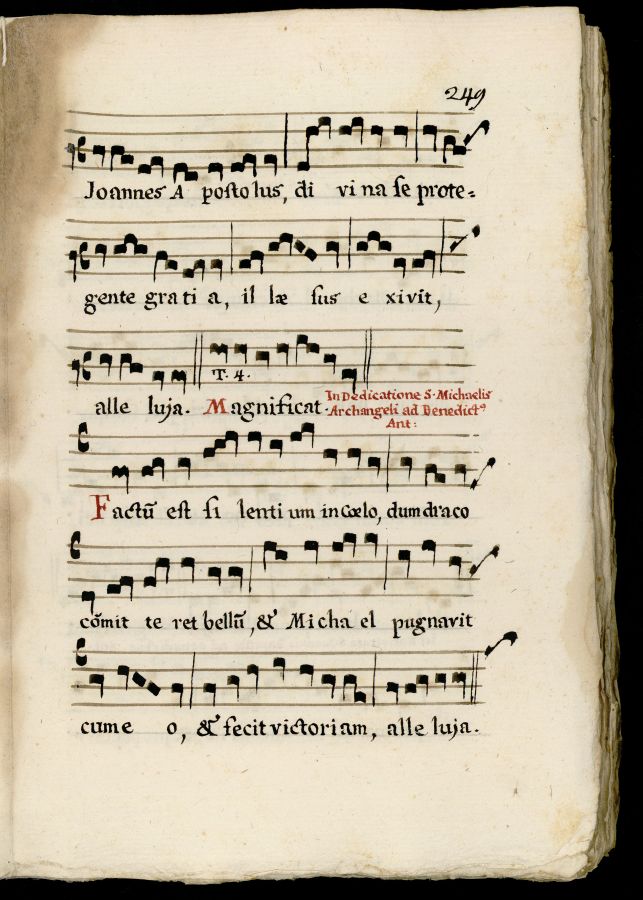 249
Joannes A postolus, di vi na se prote=
gente gra ti a, il læ sus e xivit,
T. 4.
alle luja. Magnificat.
In Dedicatione S. Michaelis
Archangeli ad Benedictꝰ
Ant:
Factũ est si lenti um in Cœlo, dum draco
cõmit te ret bellũ, & Micha el pugnavit
cum e o, & fecit victoriam, alle luja.